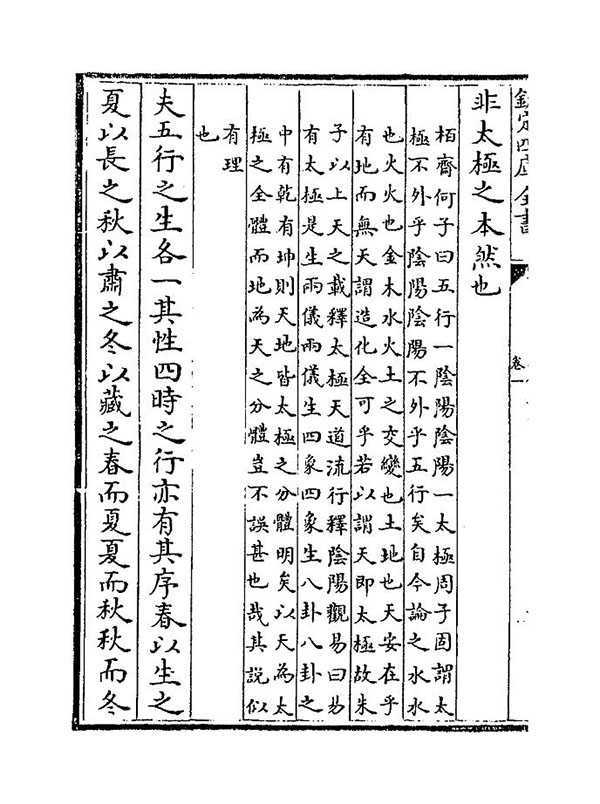 欽定四庫全書
卷一
非太極之本然也
栢齋何子曰五行一陰陽陰陽一太極周子固謂太
極不外乎陰陽陰陽不外乎五行矣自今論之水水
也火火也金木水火土之交變也土地也天安在乎
有地而無天謂造化全可乎若以謂天即太極故朱
子以上天之載釋太極天道流行釋陰陽觀易曰易
有太極是生兩儀兩儀生四象四象生八卦八卦之
中有乾有坤則天地皆太極之分體明矣以天為太
極之全體而地為天之分體豈不誤甚也哉其說似
有理
也
夫五行之生各一其性四時之行亦有其序春以生之
夏以長之秋以肅之冬以藏之春而夏夏而秋秋而冬